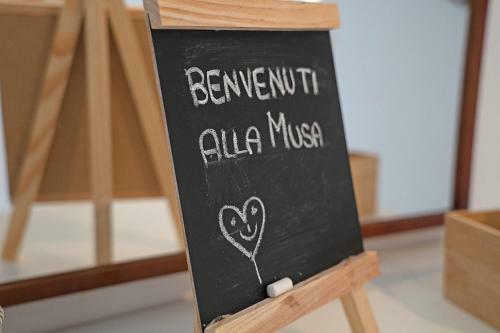 BENVENUTI
ALLA MUSA